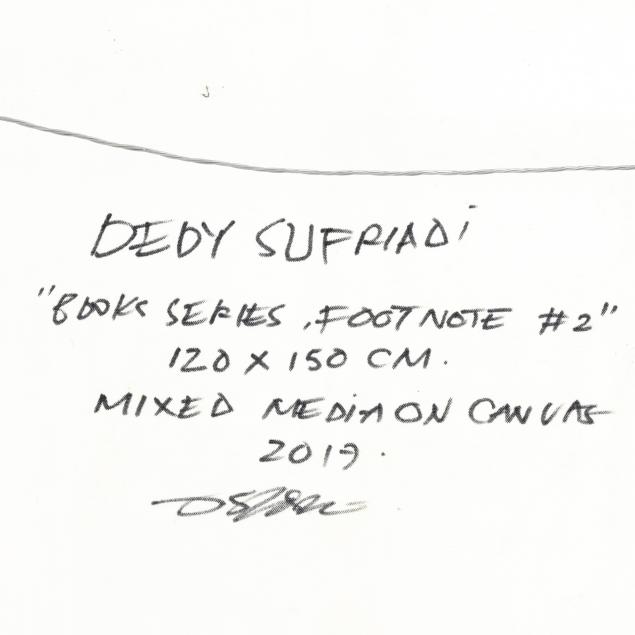 DEDY SUFRIADi
"BOOKS SERIES, FOOTNOTE #2"
120 X 150 CM.
MIXED MEDiA ON CANVAS
2019.